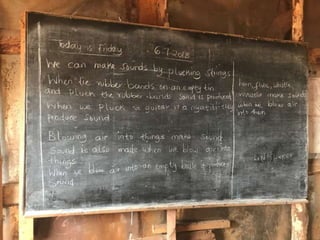 Today is Friday 6-7-2018
We can make sounds by plucking strings
When tie rubber bands on an empty tin
and pluck the rubber bands sound is produced
When we pluck a guitar it
produce sound
Blowing air into things make sound
Sound is also made when we blow air into
things
When we blow air into an empty bottle it produces
sound
horn, flute, whistle,
make sounds
when we blow air
into them